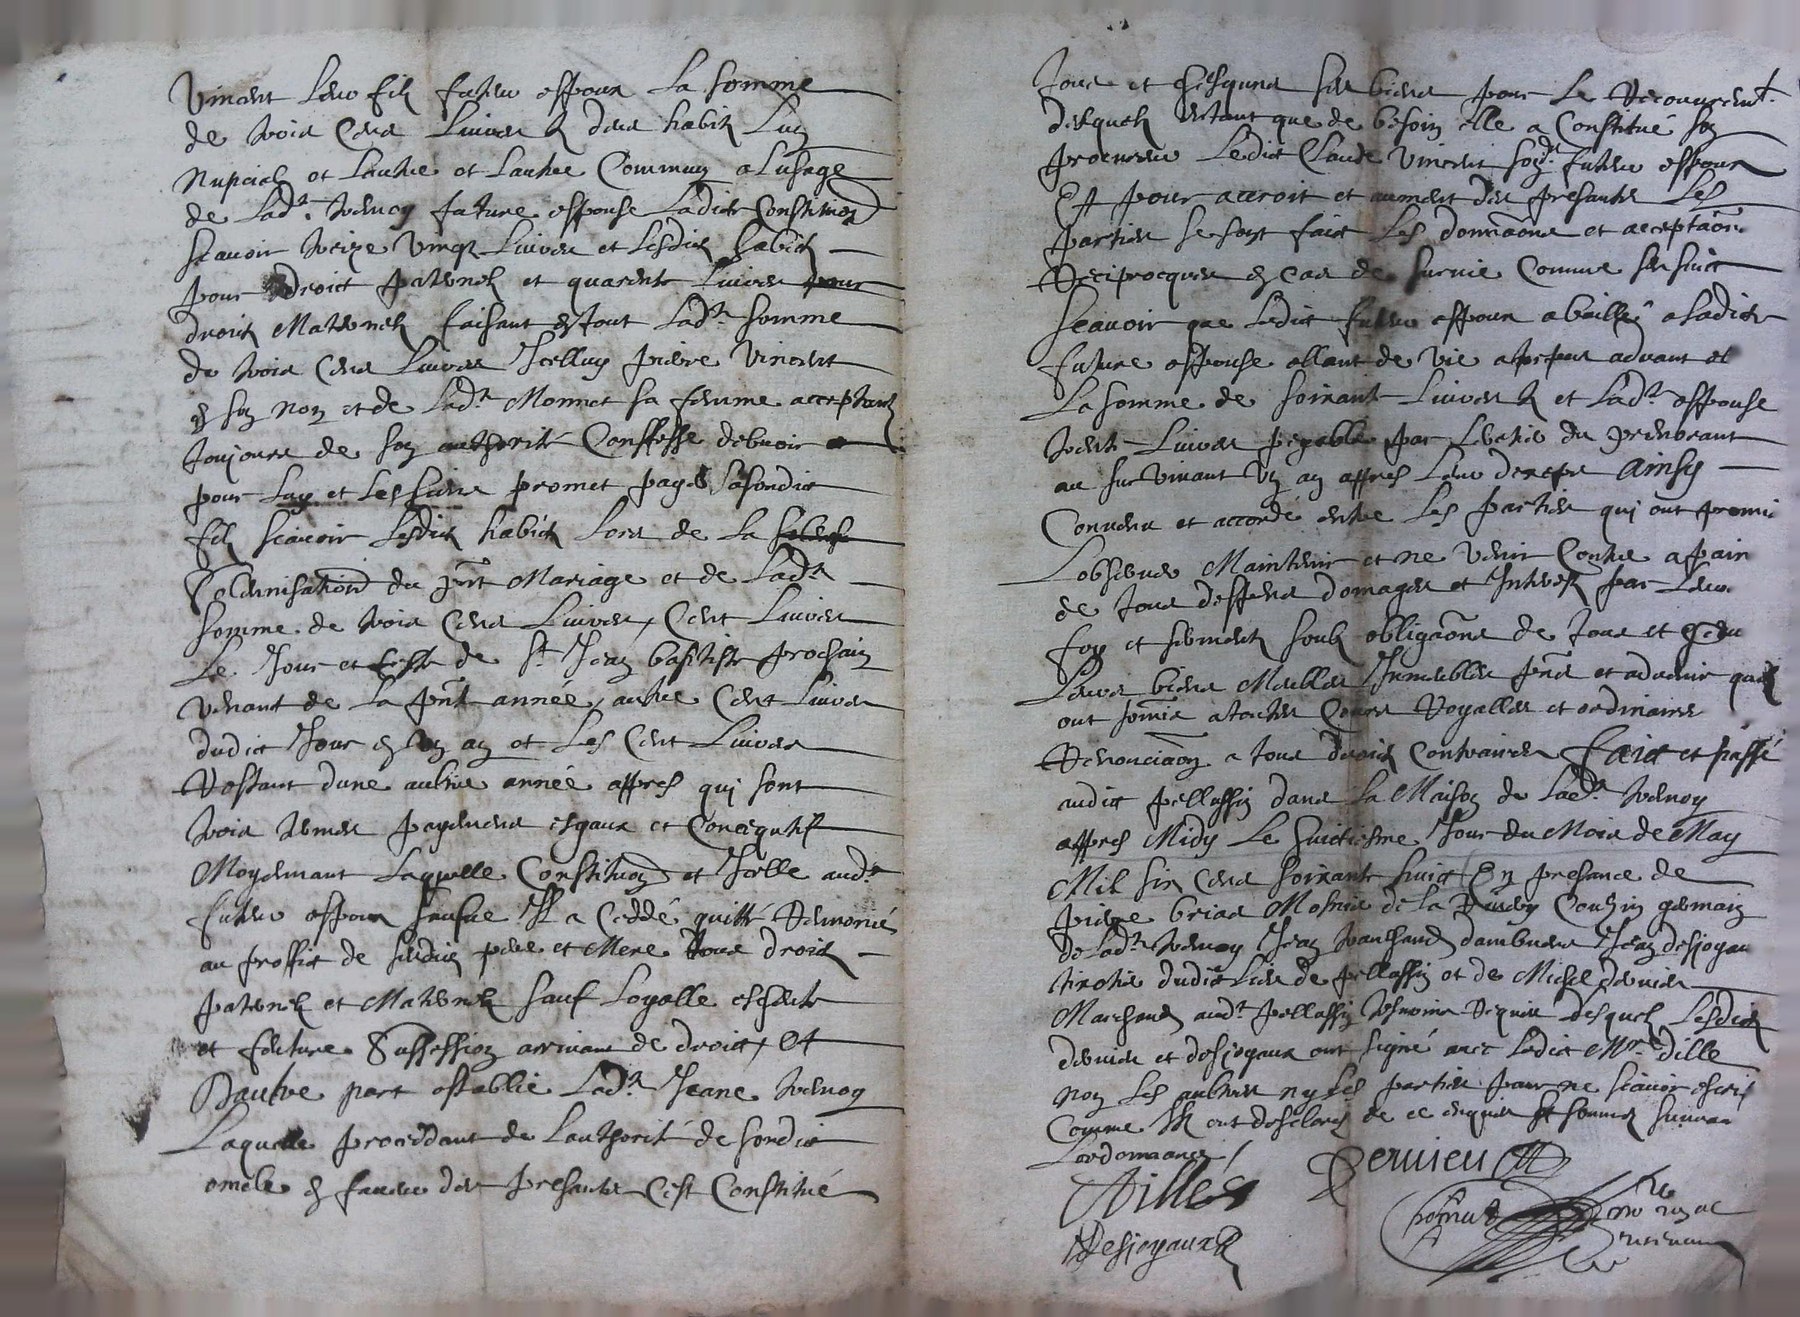 Vincent leur filz futeur espoux la somme
de trois cens livres & deux habitz lung
nupcial et lautre et lautre commung a lusage
de lad.te Ternoy future espouse ladicte constitution
scavoir treize vingt livres et lesdictz habictz
pour droict paternel et quarente livres pour
droictz maternelz faisant en tout lad.te somme
de trois cens livres Icelluy pierre Vincent
en son nom et de lad.te Monnet sa femme acceptant
toujours de son authorité Conffesse debvoir
pour luy et les siens promet payer a sondict
filz scavoir lesdictz habictz lors de la
solemnisation du pnt Mariage et de lad.te
somme de trois cens livres, cent livres
le Jour et feste de St Jean baptiste prochain
venant de la pnte année, autre cent livres
dudict Jour en ung an et les cent livres
restant dune aultre année appres qui sont
trois termes payemens esgaux et Conceqtifz
Moyennant laquelle Constitution et Icelle aud.t
futeur espoux Il a ceddé quitté Remonié
au proffict de sesdictz pere et Mere tous droictz
paternelz et Maternelz sauf loyalle escheute
et feuture Suffession arrivant de droict, Et
Dautre part establie lad.te Jeane Ternoy
laquelle proceddant de lauthorité de sondict
oncle en faveur des presantes cest Constitué
tous et chescuns ses biens pour le Recouvrem.t
desquelz En tant que de besoin elle a Constitué son
procureur ledict Claude Vincent sond.t futeur espoux
Et pour accroit et aument des presantes les
parties se sont faict les donnaõns et acceptaõns
Reciprocques en cas de survie Comme sensuict
scavoir que ledict futeur espoux a baillé a ladicte
future espouse allant de vie a trepas advant el
la somme de soixante livres & et lad.te espouse
trente livres payable par leritier du premourant
au survivant ung an appres leur decepts Ainsy
Convenu et accordé entre les parties qui ont promis
lobserver Maintenir et ne venir Contre a pain
de tous despens domages et Interestz par leur
foy et serment soubz obligaõns de tous et chescuns
leurs biens Meubles Immeubles pns et advenir quilz
ont soumis a toutes Cours Royalles et ordinaires
Renonciaõn a tous droictz Contraires Faict et passé
audict pellussin dans la Maison de lad.te Ternoy
appres Midy le huictiesme Jour du Mois de May
Mil six cens soixante huict En presance de
pierre brias Cousin germain
de lad.te Ternoy Jean Jean desjoyaux
dudict lieu de pellussin et de Michel dervieu
Marchand aud.t pellussin tesmoins Requis desquelz lesdictz
dervieu et desjoyaux ont signé avec ledict Mr. dille
non les aultres ny les parties pour ne scavoir escrire
Comme Ilz ont desclaré de ce enquis et sommés suivant
lordonnance /
Dervieu
Dillés
Desjoyaux
no.re royal